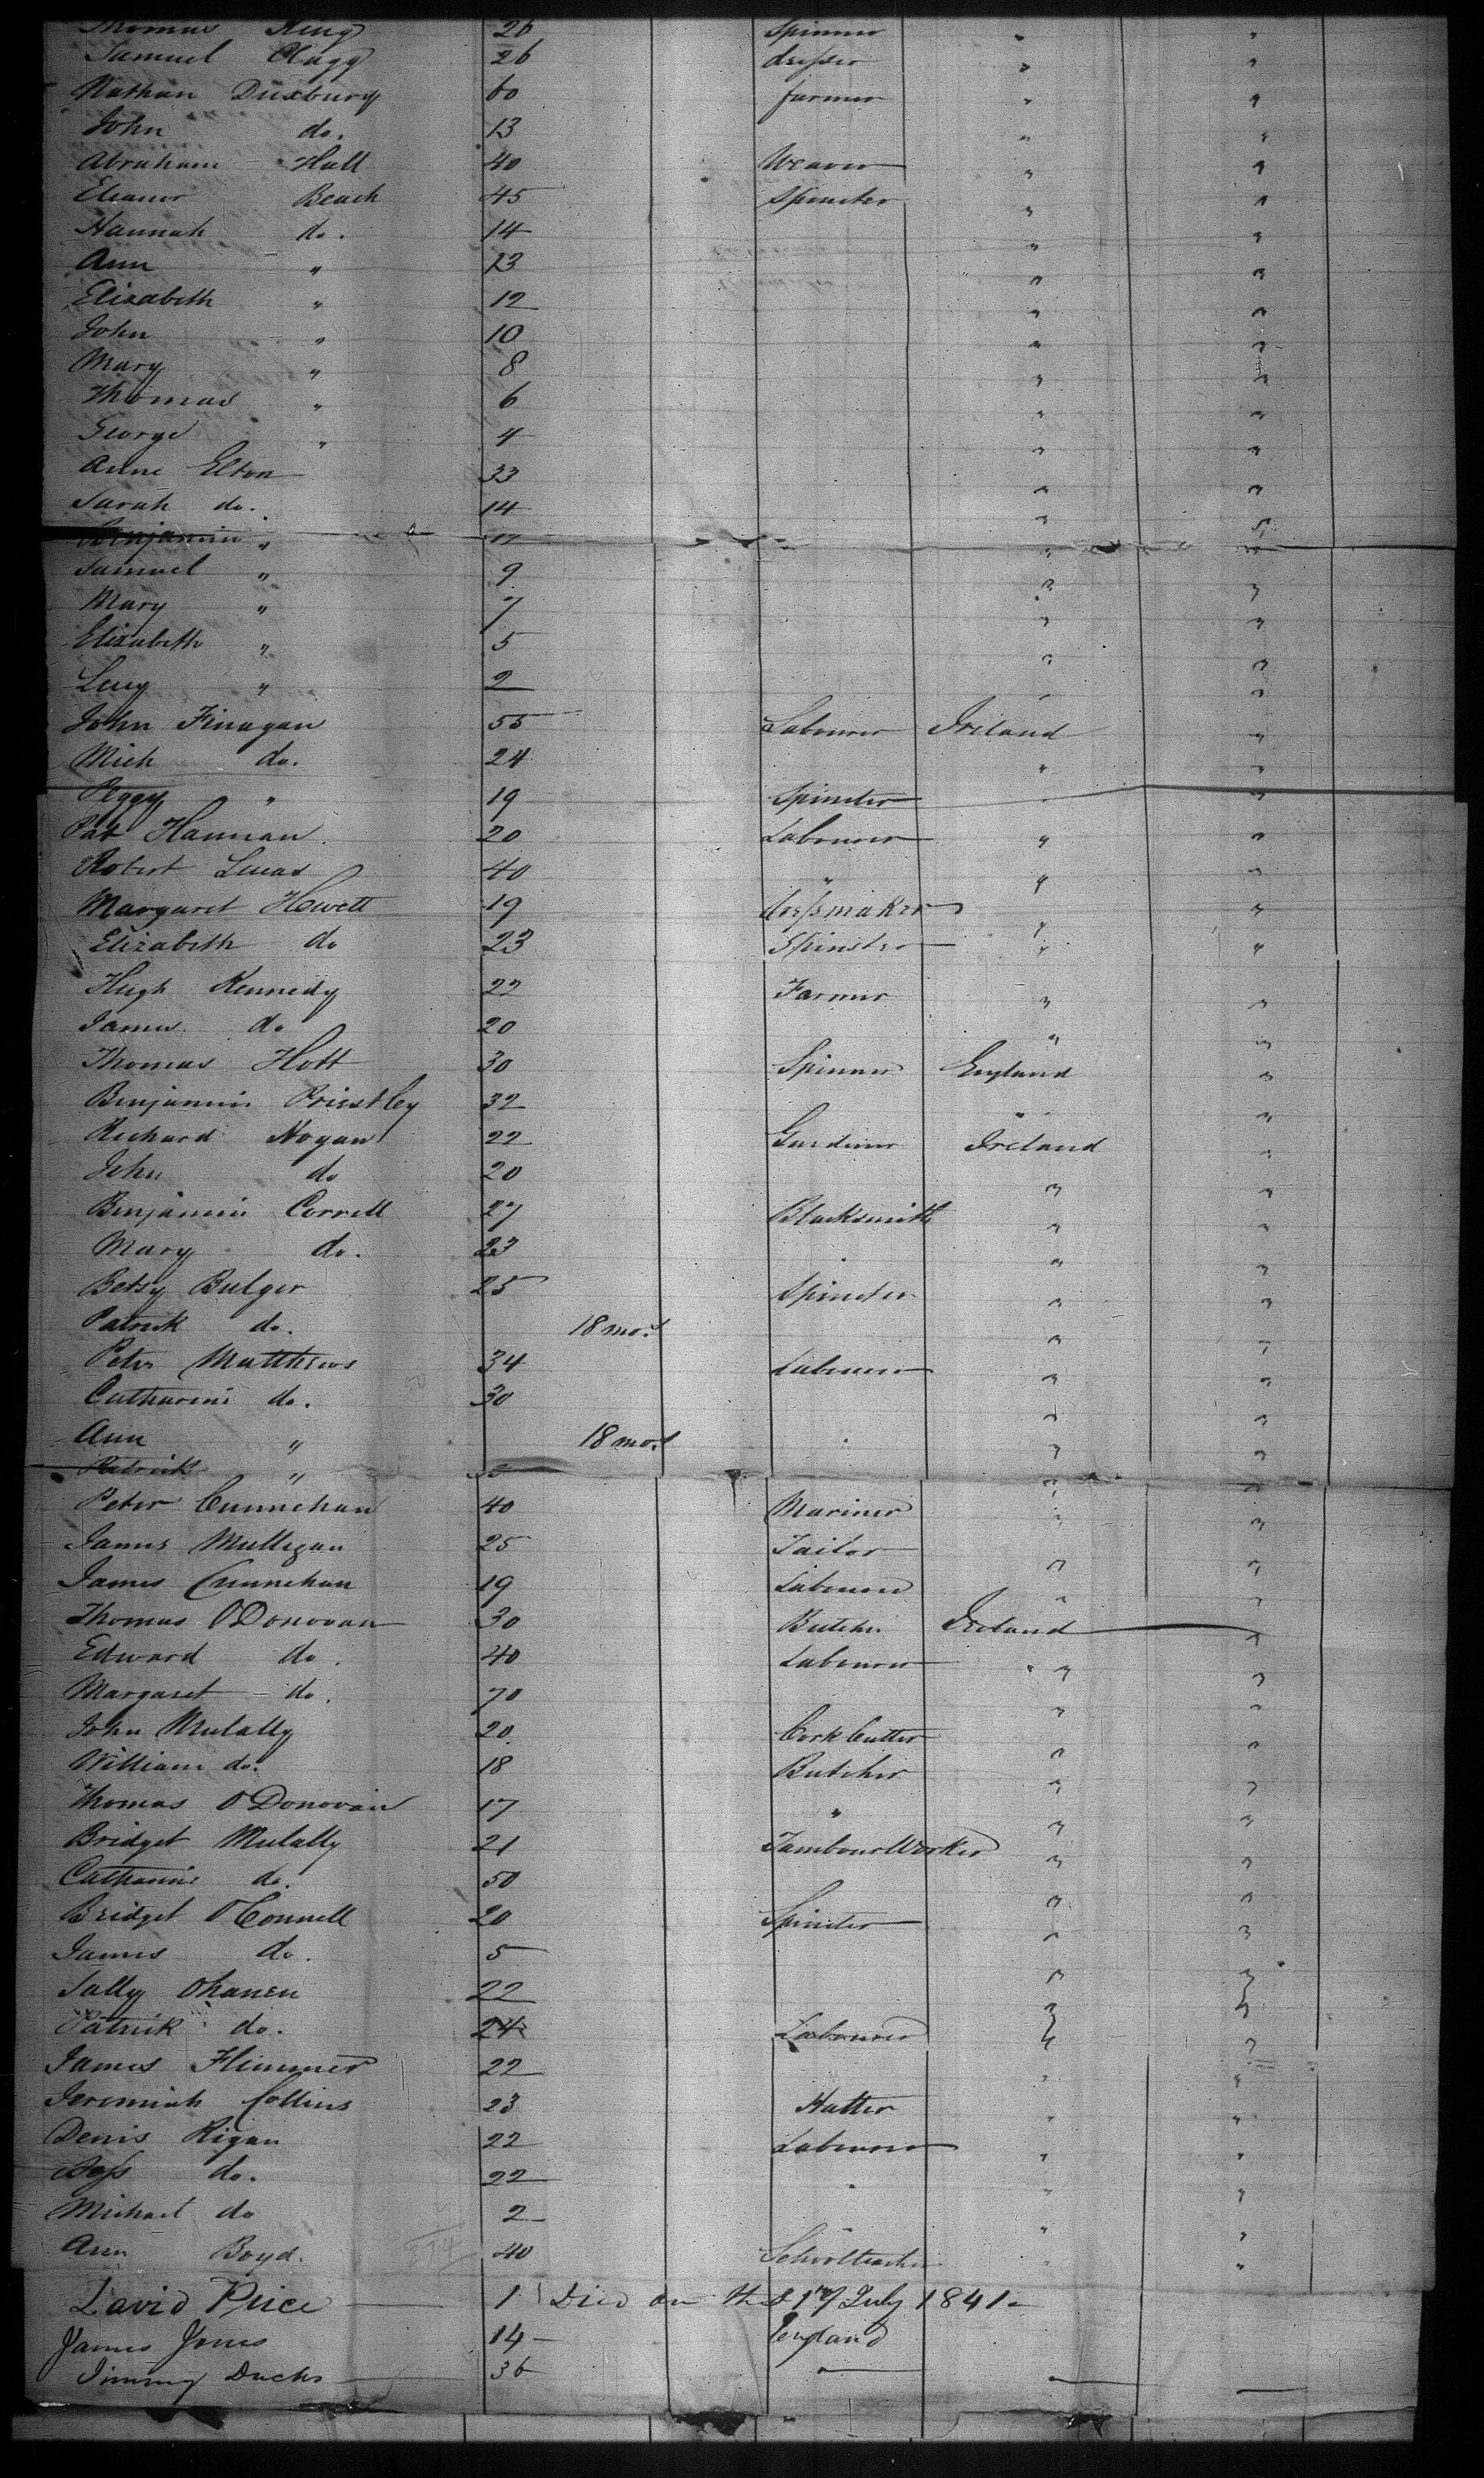 Thomas King 26 Spinner " "
Samuel Clagg 26 dresser " "
Nathan Duxbury 60 farmer " "
John do. 13 " "
Abraham Hall 40 Weaver " "
Eleanor Beach 45 Spinster " "
Hannah do. 14 " "
Ann " 13 " "
Elizabeth " 12 " "
John " 10 " "
Mary " 8 " "
Thomas " 6 " "
George " 4 " "
Anne Elton 33 " "
Sarah do. 14 " "
Benjamin " " "
Samuel " 9 " "
Mary " 7 " "
Elizabeth " 5 " "
Lucy " 2 " "
John Finagan 55 Labourer Ireland "
Mich do. 24 " "
Peggy " 19 Spinster " "
Pat Hannan 20 Labourer " "
Robert Lucas 40 " " "
Margaret Hewett 19 dressmaker " "
Elizabeth do 23 Spinster " "
Hugh Kennedy 22 Farmer " "
James do 20 " "
Thomas Hott 30 Spinner England "
Benjamin Priestley 32 " "
Richard Hogan 22 Gardiner Ireland "
John do 20 " "
Benjamin Correll 27 Blacksmith " "
Mary do. 23 " "
Betsy Bulger 25 Spinster " "
Patrick do. 18 mos " "
Peter Matthews 34 Labourer " "
Catharine do. 30 " "
Ann " 18 mos " "
Patrick " " "
Peter Cunnehan 40 Mariner " "
James Mulligan 25 Tailor " "
James Cunnehan 19 Labourer " "
Thomas O'Donovan 30 Butcher Ireland "
Edward do. 40 Labourer " "
Margaret do. 70 " "
John Mulally 20 Cork Cutter " "
William do. 18 Butcher " "
Thomas O'Donovan 17 " " "
Bridget Mulally 21 Tambour Worker " "
Catharine do. 50 " "
Bridget O'Connell 20 Spinster " "
James do. 5 " "
Sally Ohanen 22 " "
Patrick do. 24 Labourer " "
James Flimmer 22 " "
Jeremiah Collins 23 Hatter " "
Denis Rigan 22 Labourer " "
Bess do. 22 " "
Michael do 2 " "
Ann Boyd. 40 Schoolteacher " "
David Price 1 Died on the July 1841
James Jones 14 England
Jimmy Ducks 36